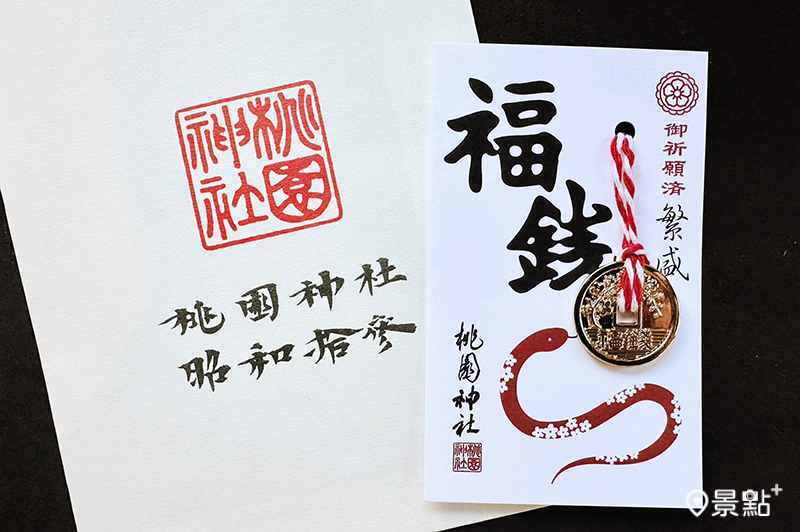 桃園
神社
桃園神社
昭和拾參
福
銭
御祈願済
繁盛
桃園神社
桃園
神社
景點+